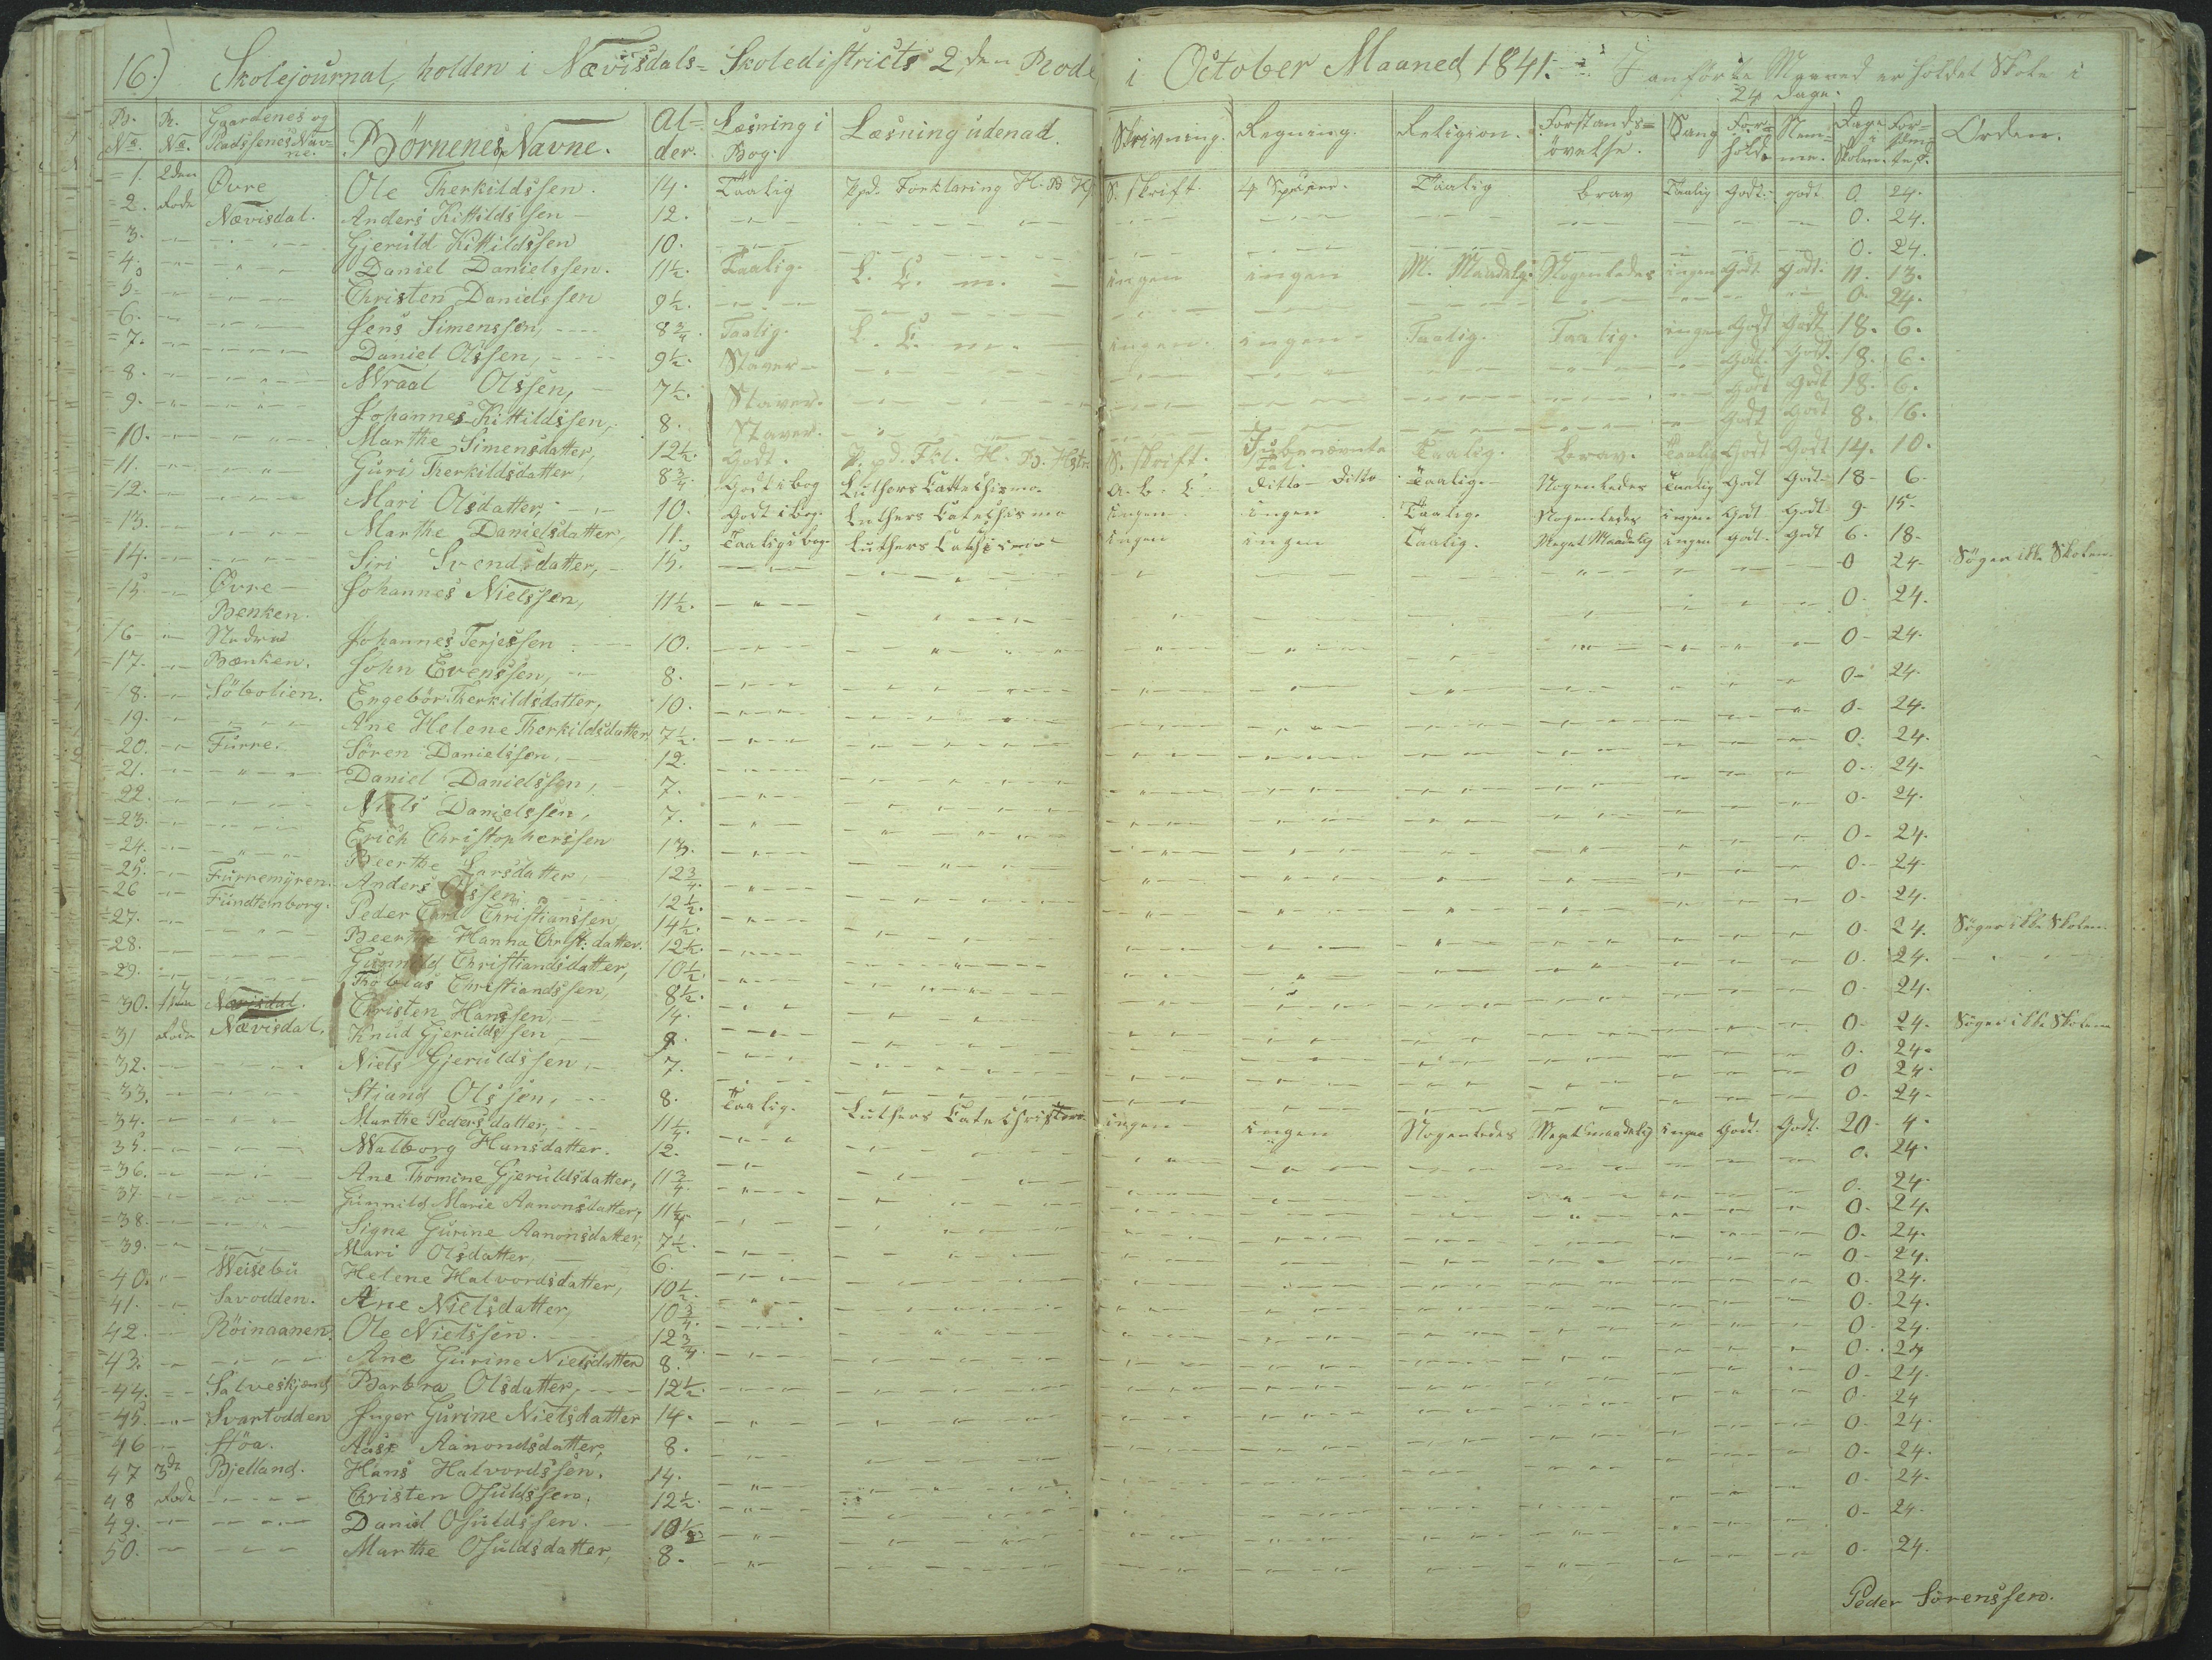 16.) Skolejournal, holden i Nævisdals= Skoledistricts 2den Rode i October Maaned 1841. I anförte Maaned er holdet Skole i
24 Dage.
B. No. R. No. Gaardenes og Pladssenes Nav=ne. Börnenes Navne. Al=der. Læsning i Bog. Læsning udenad. Skrivning. Regning. Religion. Forstands=övelse. Sang For=hold. Stem=me. Dage i Skolen. For=söm=te D. Orden.
1. 2den Övre Ole Therkildssen. 14. Taalig Ppd. Forklaring H. B. H. S. Skrift 4 Species. Taalig brav Taalig Godt. godt 0. 24.
2. Rode Nævisdal. Anders Kittildssen 12. 0. 24.
3. Gjeruld Kittildssen 10. 0. 24.
4. Daniel Danielssen. 11½. Taalig. L. C. m. ingen ingen M. Maadelg. Nogenledes ingen Godt Godt. 11. 13.
5. Christen Danielssen 9½. 0. 24.
6. Jens Simenssen, 8¾. Taalig. L. C. m. ingen. ingen Taalig. Taalig. ingen Godt Godt 18. 6.
7. Daniel Olssen, 9½. Staver Godt. Godt. 18. 6.
8. Wraal Olssen, 7½. Staver. Godt Godt 18. 6.
9. Johannes Kittildssen, 8. Staver. Godt Godt 8. 16.
10. Marthe Simensdatter, 12½. Godt. P. pd. Fkl. H. B. Hstr. S. Skrift. I ubenævnte Tal. Taalig. brav. Taalig Godt Godt 14. 10.
11. Guri Therkildsdatter, 8¾. Godt i bog Luthers Cattechismo. a. b. c. ditto ditto Taalig. Nogenledes Taalig Godt Godt 18 6
12. Mari Olsdatter, 10. Godt i bog. Luthers Catechismo ingen ingen Taalig. Nogenledes ingen Godt Godt 9. 15.
13. Marthe Danielsdatter, 11. Taalig i bog. Luthers ingen ingen Taalig. Meget Maadelig ingen Godt. Godt 6. 18.
14. Siri Svendsdatter, 15. 0 24. Söger ikke Skolen.
15. Övre Benken. Johannes Nielssen, 11½. 0. 24.
16 Nedre Johannes Terjessen 10. 0 24.
17. Bænken. John Evenssen, 8. 0 24.
18. Söbolien. Engebör Therkildsdatter, 10. 0. 24.
19. Ane Helene Therkildsdatter 7½. 0. 24.
20. Furre. Sören Danielssen, 12. 0. 24.
21. Daniel Danielssen, 7. 0. 24.
22. Niels Danielssen, 7. 0. 24.
23. Erich Christopherssen 13. 0. 24.
24. Beerthe Larsdatter, 12¾. 0. 24.
25. Furremyren. Anders Olssen, 12½. 0. 24.
26 Fundtenborg. Peder Carl Christianssen 14½. 0. 24. Söger ikke Skolen.
27. Beerthe Hanna Christ: datter. 12½. 0. 24.
28. Gunnild Christiandsdatter, 10½. 0. 24.
29. Thobias Christiandssen, 8½. 0. 24. Söger ikke Skolen
30. 1ste Nævisdal. Christen Hanssen, 14. 0. 24.
31 Rode Nævisdal. Knud Gjeruldssen 9. 0 24.
32. Niels Gjeruldssen, 7. 0. 24.
33. Stiand Olssen, 8. Taalig. Luthers ingen ingen Nogenledes Meget maadelig ingen Godt. Godt. 20 4.
34. Marthe Pedersdatter, 11¼. 0. 24.
35. Walborg Hansdatter. 12. 0. 24.
36. Ane Thomine Gjeruldsdatter, 11¾. 0. 24.
37. Gunnild Marie Aanonsdatter, 11¼. 0. 24.
38. Signe Gurine Aanonsdatter, 7½. 0. 24.
39. Mari Olsdatter, 6. 0. 24.
40. Weisebu Helene Halvordsdatter, 10½. 0. 24.
41. Savodden. Ane Nielsdatter, 10¾. 0. 24.
42. Röinaanen. Ole Nielssen. 12¾. 0. 24
43. Ane Gurine Nielsdatter 8. 0. 24.
44. Salveskjend Barbra Olsdatter, 12½. 0. 24
45. Svartodden Inger Gurine Nielsdatter 14. 0. 24.
46 Stöa. Aase Aanondsdatter, 8. 0. 24.
47 3de Bjelland. Hans Halvordssen. 14. 0. 24.
48 Rode Christen Osuldssen, 12½. 0. 24.
49. Daniel Osuldssen. 10½ 0. 24.
50. Marthe Osuldsdatter, 8.
Peder Sörenssen.